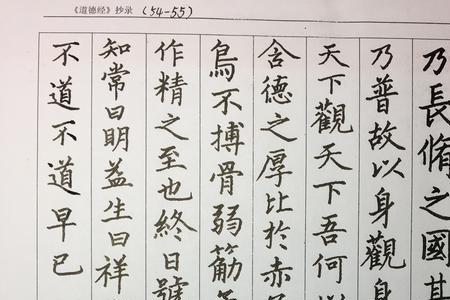 《道德经》抄录 (54-55)
乃長脩之國其
乃普故以身觀身
天下觀天下吾何
含德之厚比於赤
鳥不搏骨弱筋
作精之至也終日號
知常曰明益生曰祥
不道不道早已